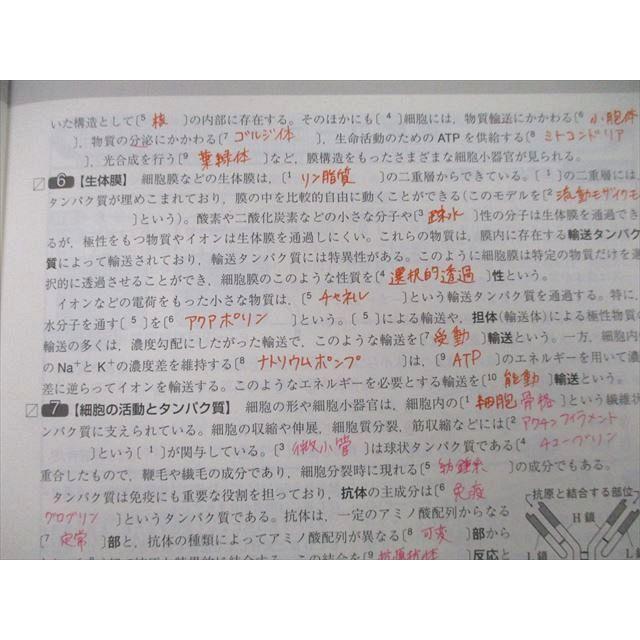 いた構造として〔⁵ 核 〕の内部に存在する。そのほかにも〔 ⁴ 〕細胞には、物質輸送にかかわる〔⁶ 小胞体
〕、物質の分泌にかかわる〔⁷ ゴルジ体 〕、生命活動のための ATP を供給する〔⁸ ミトコンドリア
〕、光合成を行う〔⁹ 葉緑体 〕など、膜構造をもったさまざまな細胞小器官が見られる。
6 【生体膜】 細胞膜などの生体膜は、〔¹ リン脂質 〕の二重層からできている。〔 ¹ 〕の二重層には、
タンパク質が埋めこまれており、膜の中を比較的自由に動くことができる(このモデルを〔² 流動モザイクモ
〕という)。酸素や二酸化炭素などの小さな分子や〔³ 疎水 〕性の分子は生体膜を通過でき
るが、極性をもつ物質やイオンは生体膜を通過しにくい。これらの物質は、膜内に存在する輸送タンパク
質によって輸送されており、輸送タンパク質には特異性がある。このように細胞膜は特定の物質だけを選
択的に透過させることができ、細胞膜のこのような性質を〔⁴ 選択的透過 〕性という。
イオンなどの電荷をもった小さな物質は、〔⁵ チャネル 〕という輸送タンパク質を通過する。特に、
水分子を通す〔 ⁵ 〕を〔⁶ アクアポリン 〕という。〔 ⁵ 〕による輸送や、担体(輸送体)による極性物質
輸送の多くは、濃度勾配にしたがった輸送で、このような輸送を〔⁷ 受動 〕輸送という。一方、細胞内
の Na⁺ と K⁺ の濃度差を維持する〔⁸ ナトリウムポンプ 〕は、〔⁹ ATP 〕のエネルギーを用いて濃
差に逆らってイオンを輸送する。このようなエネルギーを必要とする輸送を〔¹⁰ 能動 〕輸送という。
7 【細胞の活動とタンパク質】 細胞の形や細胞小器官は、細胞内の〔¹ 細胞骨格 〕という繊維状
ンパク質に支えられている。細胞の収縮や伸展、細胞質分裂、筋収縮などには〔² アクチンフィラメント
〕という〔 ¹ 〕が関与している。〔³ 微小管 〕は球状タンパク質である〔⁴ チューブリン
重合したもので、鞭毛や繊毛の成分であり、細胞分裂時に現れる〔⁵ 紡錘糸 〕の成分でもある。
タンパク質は免疫にも重要な役割を担っており、抗体の主成分は〔⁶ 免疫
グロブリン 〕というタンパク質である。抗体は、一定のアミノ酸配列からなる
〔⁷ 定常 〕部と、抗体の種類によってアミノ酸配列が異なる〔⁸ 可変 〕部から
結合する。この結合を〔⁹ 抗原抗体 〕反応と
抗原と結合する部位
H鎖
L鎖
L